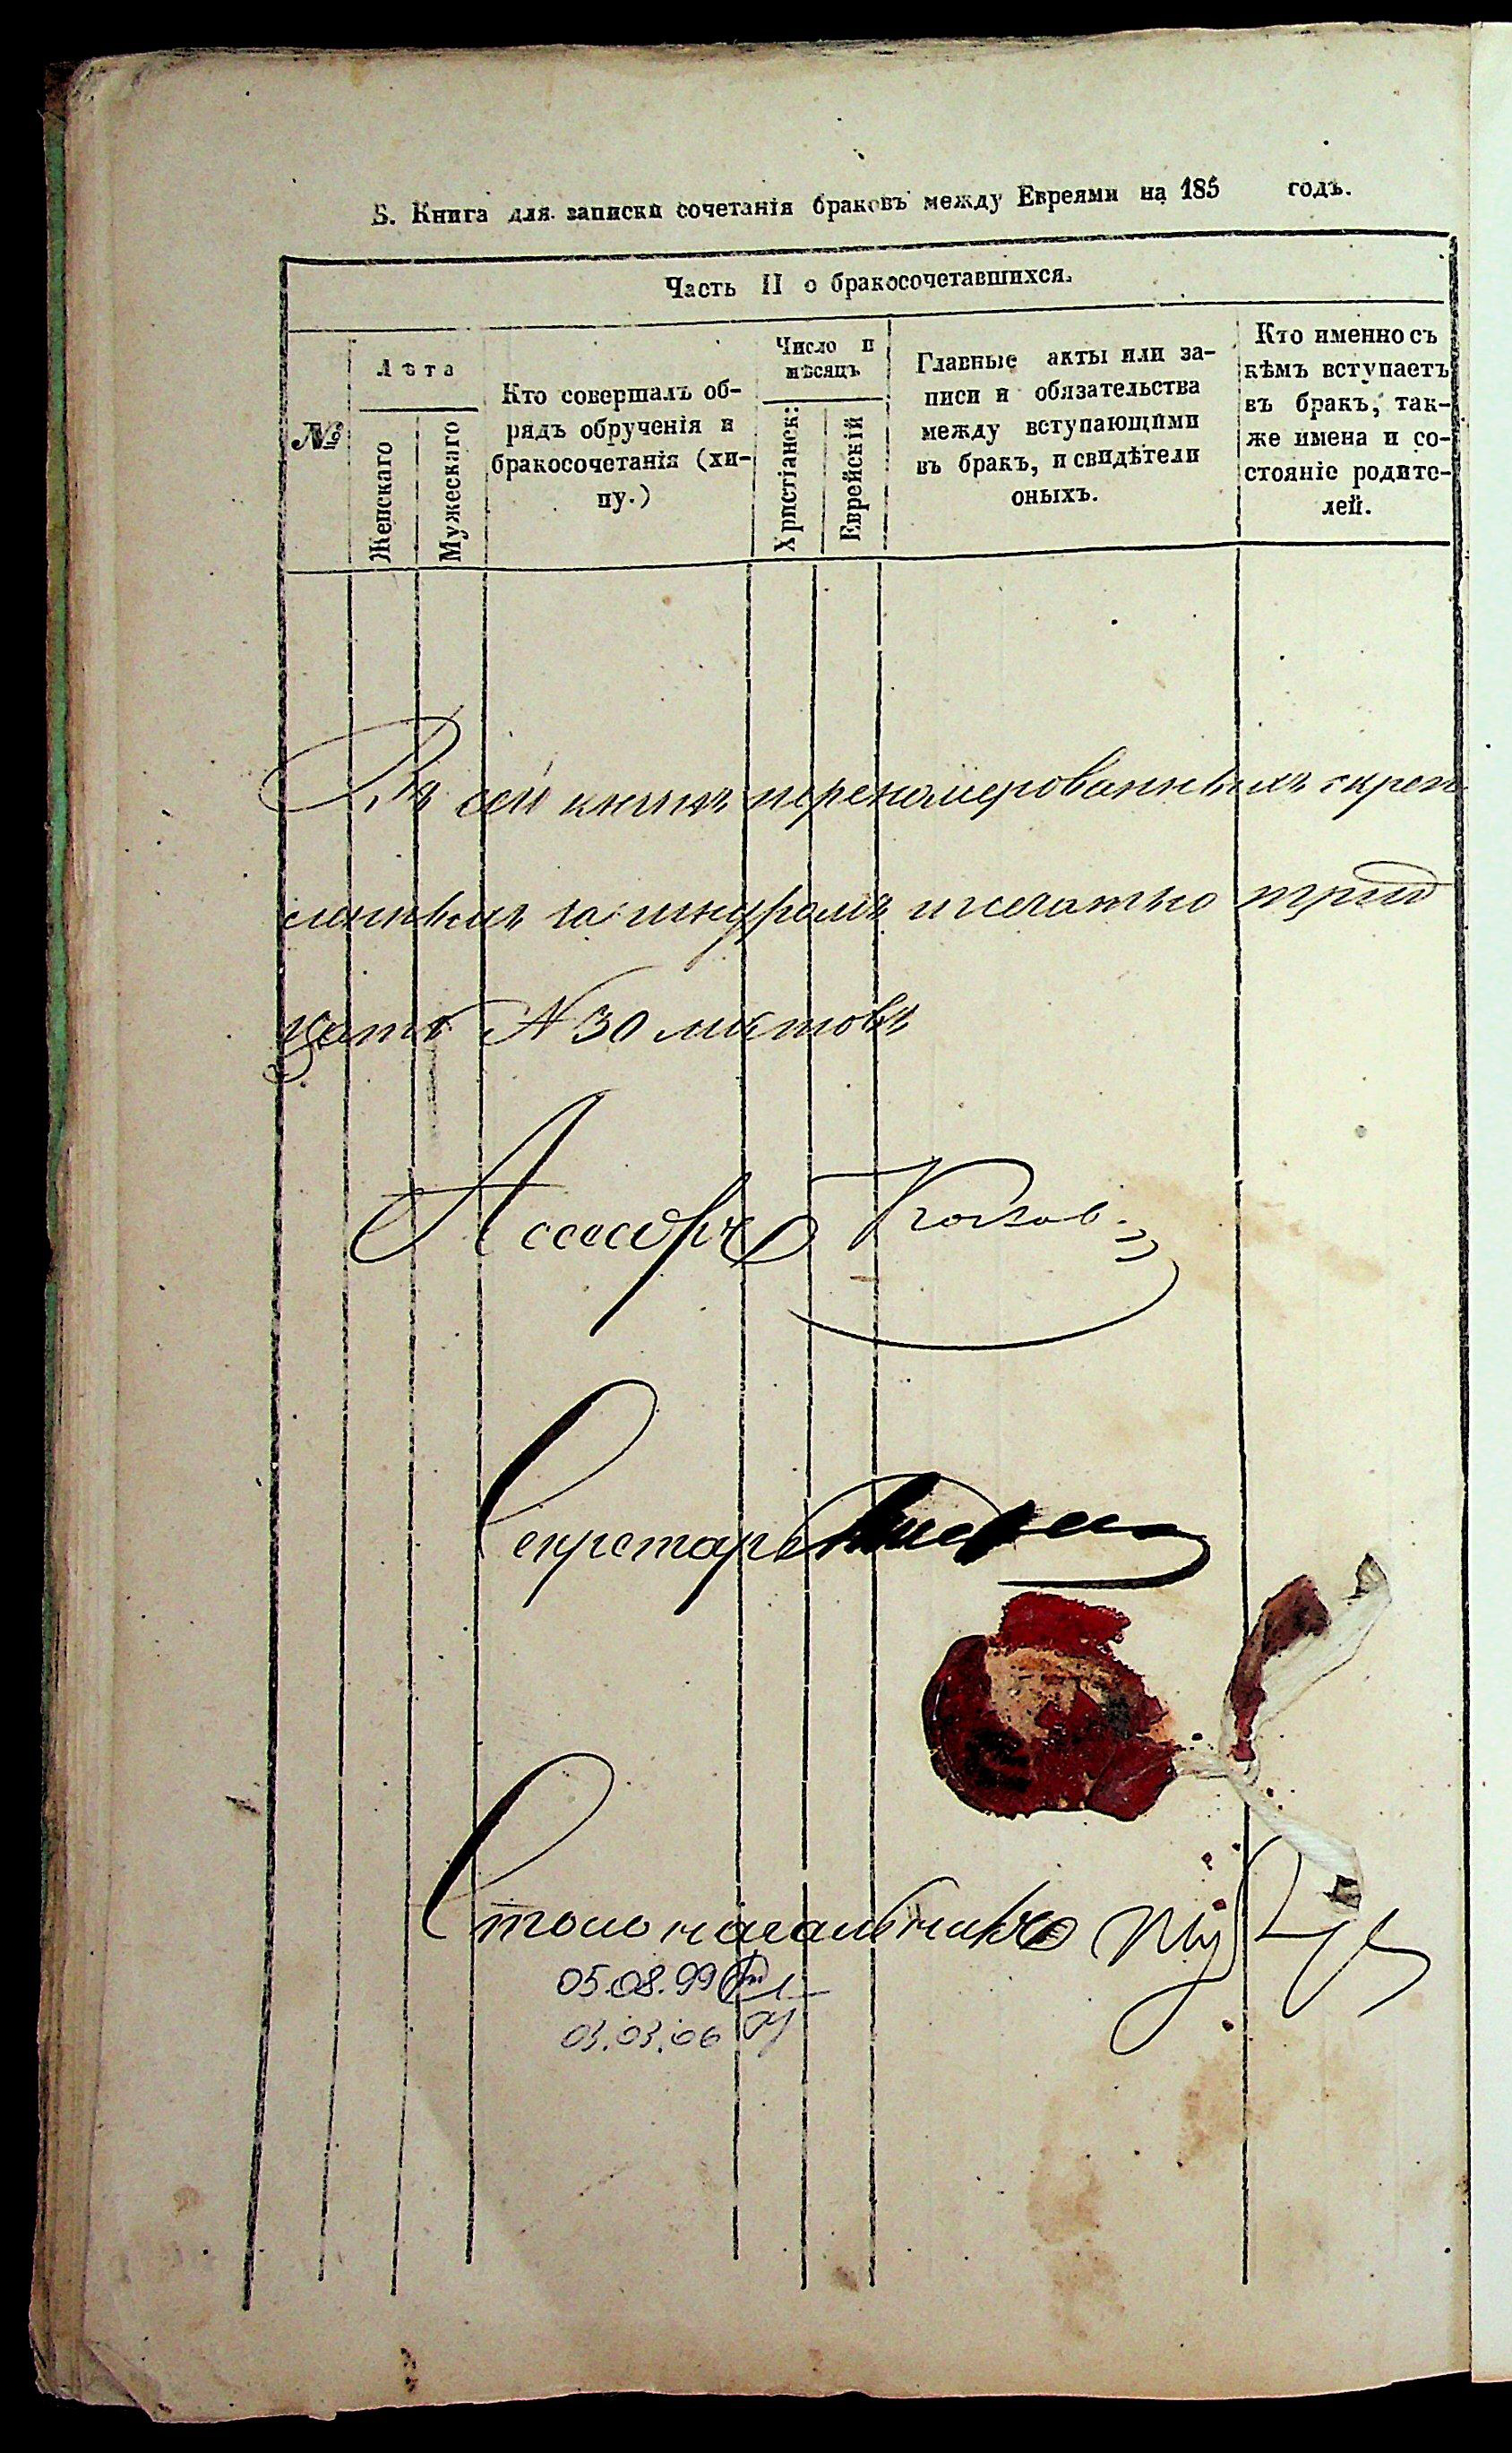 Б. Книга для записки сочетанія браковъ между Евреями на 185 годъ.
Часть II о бракосочетавшихся.
№
Лѣта
Женскаго
Мужескаго
Кто совершалъ об-
рядъ обрученія и
бракосочетанія (хи-
пу.)
Число и
мѣсяцъ
Христіанск:
Еврейскій
Главные акты или за-
писи и обязательства
между вступающими
въ бракъ, и свидѣтели
оныхъ.
Кто именно съ
кѣмъ вступаетъ
въ бракъ, так-
же имена и со-
стояніе родите-
лей.
Въ сей книгѣ перенумерованныхъ скреп
ленныхъ за шнуромъ и печатью трид
цать N 30 листовъ
Асесоръ
Секретарь
Столоначальникъ
05.08.99
03.03.06